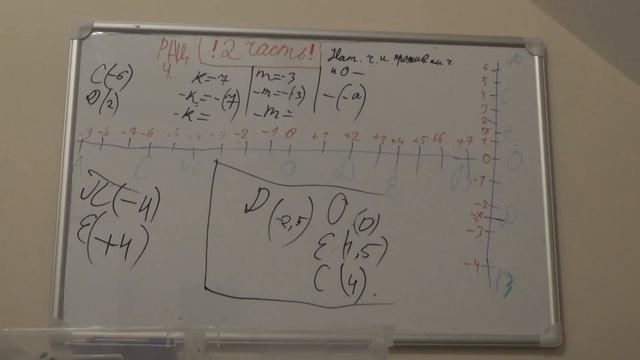 РАЦ !2 часть!
ч
Нат. ч. и противоп ч
"О—
—(-a)
C(-6)
D(2)
к=7
-к=-(7)
-к=
m=-3
-m=-(-3)
-m=
-9 -8 -7 -6 -5 -4 -3 -2 -1 0 +1 +2 +3 +4 +5 +6 +7
A C O D E B
Л(-4)
E(+4)
D(-2,5) O(0)
E(1,5)
C(4).
6
5
4
3
2
1
0
-1
-2
-3
-4
C
E
O
D
B